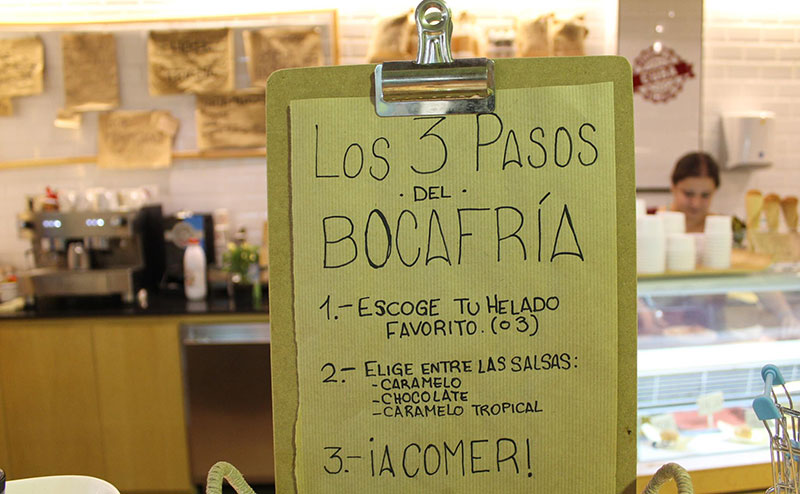 LOS 3 PASOS
·DEL·
BOCAFRÍA
1.- ESCOGE TU HELADO
FAVORITO. (o 3)
2.- ELIGE ENTRE LAS SALSAS:
-CARAMELO
-CHOCOLATE
-CARAMELO TROPICAL
3.- ¡A COMER!